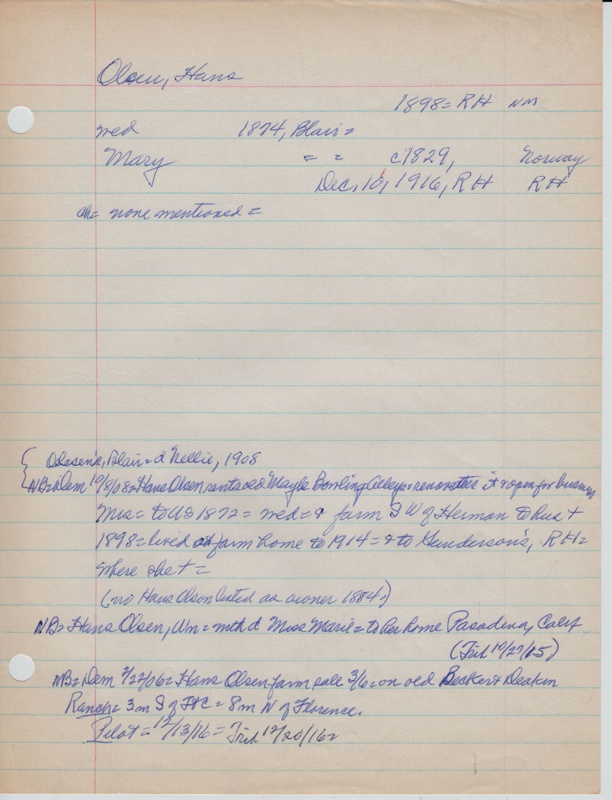 Olsen, Hans
1898= RH NM
wed 1874, Blair=
Mary = = c1829, Norway
Dec. 10, 1916, RH RH
ch= none mentioned=
Olesen's, Blair= d Nellie, 1908
NB= Dem 10/8/08= Hans Olsen rents old Bowling Alley= renovates it & open for business
Mrs= to US 1872= wed= & farm SW of Herman to Hus +
1898= lived on farm home to 1914= & to Gunderson's, RH=
where she +=
(no Hans Olson listed as owner 1884=)
NB= Hans Olsen, Wm= mth d Miss Marie= to her home Pasadena, Calif
(Trib 10/27/05)
NB= Dem 2/22/06= Hans Olsen farm sale 3/6= on old Deakin
Ranch= 3m S of FtC= 8m W of Florence.
Pilot= 12/13/16= Trib 12/20/16=